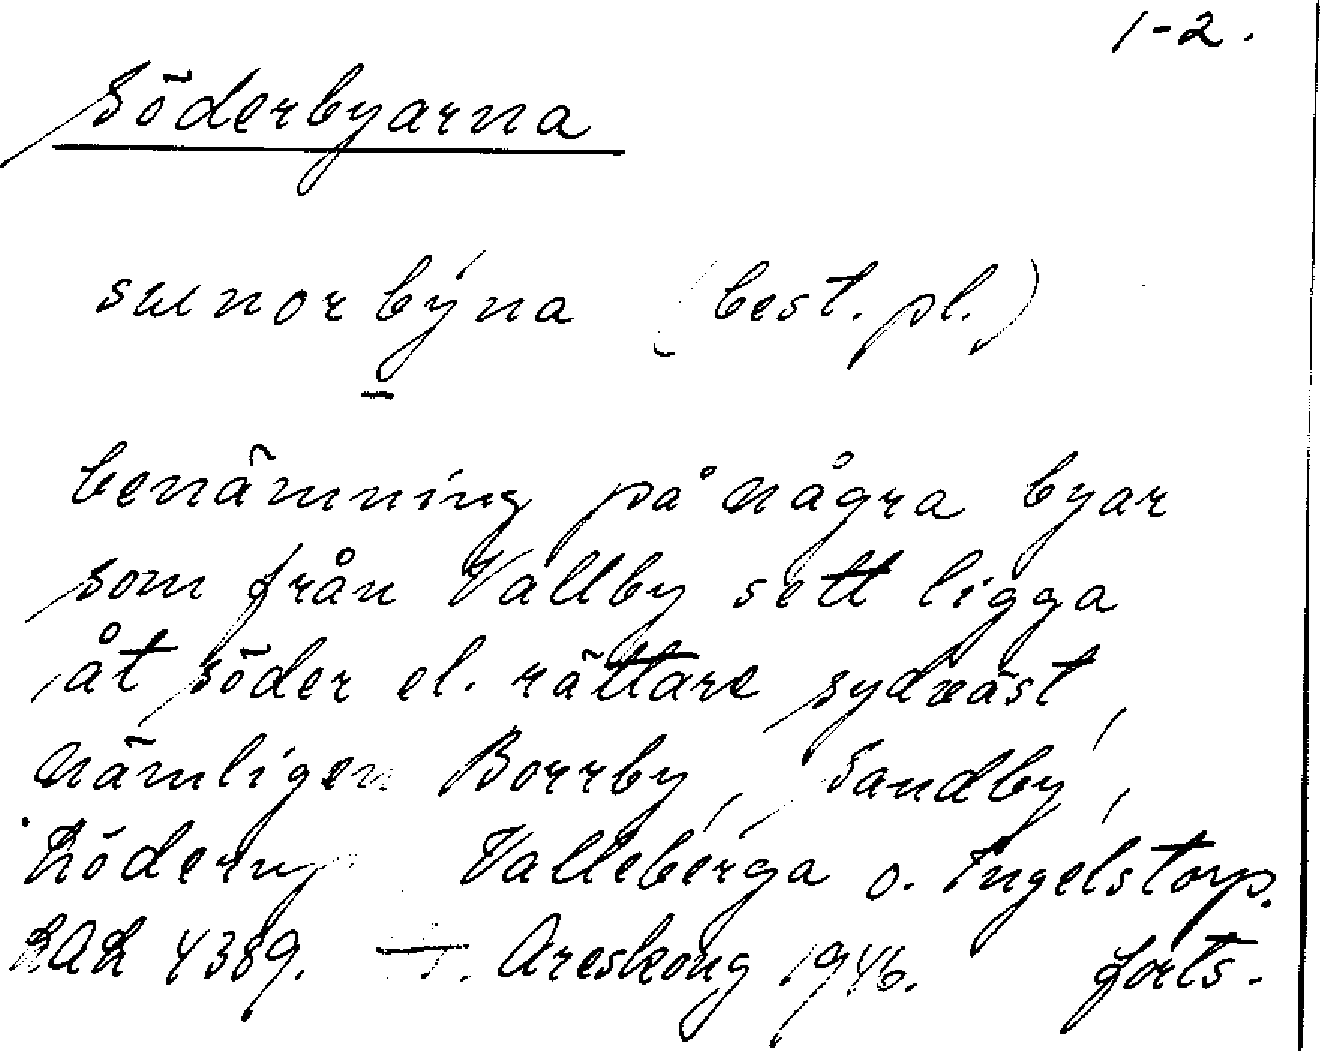 1-2.
Söderbyarna
sunorbýna (best. pl.)
benämning på några byar
som från Vallby sett ligga
åt söder el. rättare sydväst,
nämligen Borrby, Sandby,
Löderup, Valleberga o. Ingelstorp.
4389. Areskoug 1946. forts.